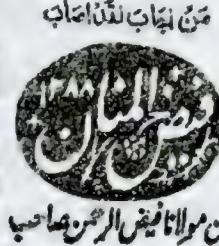 مَنْ اَجَابَ لَقَدْ اَصَابَ
فیض المنان
۱۳۸۸
مولانا فیض الرحمٰن صاحب